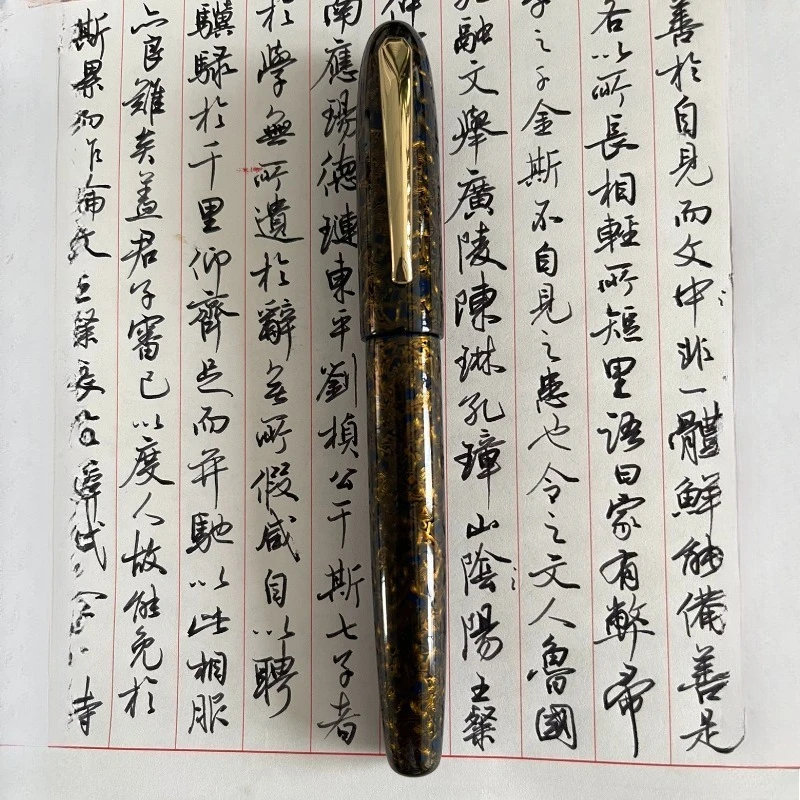 善於自見而文中非一體鮮能備善是
各以所長相輕所短里語曰家有弊帚
之千金斯不自見之患也今之文人魯國
孔融文舉廣陵陳琳孔璋山陰陽王粲
仲
南應瑒德璉東平劉楨公干斯七子者
於學無所遺於辭無所假咸自以騁
驥騄於千里仰齊足而并馳以此相服
亦良難矣蓋君子審己以度人故能免於
斯累而作論文王粲長於辭